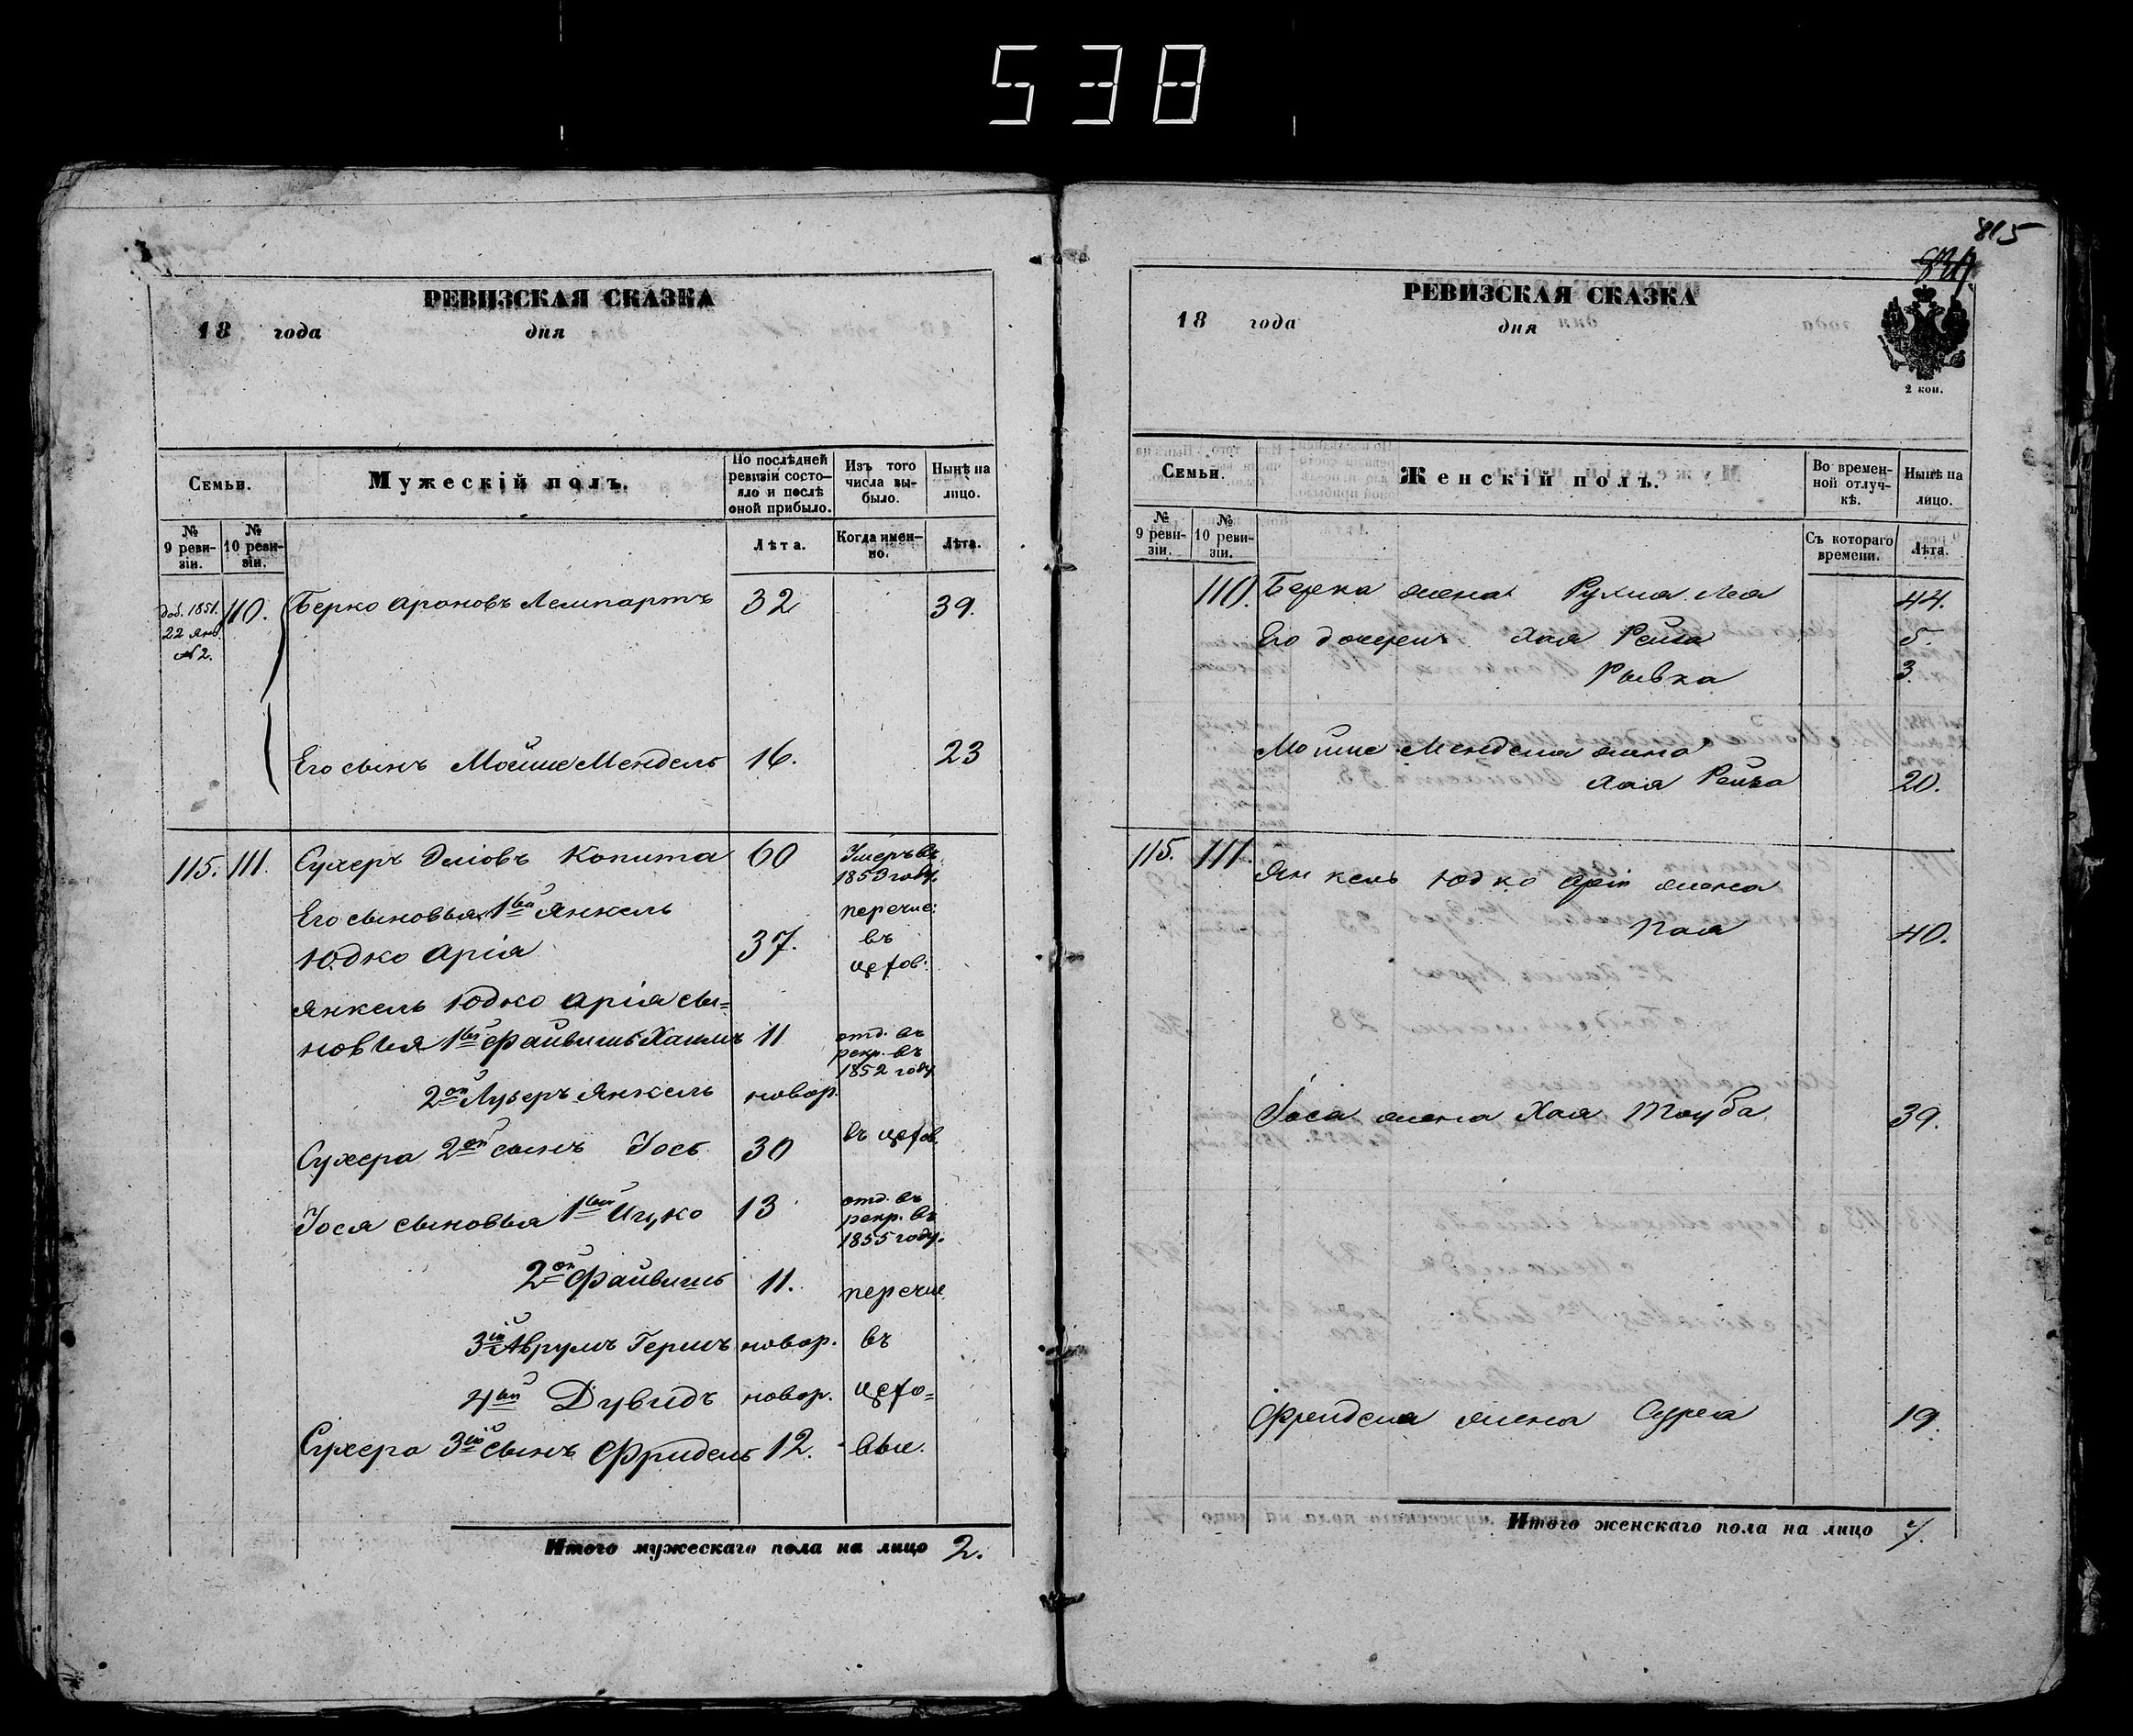 538
РЕВИЗСКАЯ СКАЗКА
18 года дня
Семьи.
Мужескій полъ.
По послѣдней ревизіи состояло и послѣ оной прибыло.
Изъ того числа выбыло.
Нынѣ на лицо.
№ 9 ревизіи.
№ 10 ревизіи.
Лѣта.
Когда именно.
Лѣта.
доб. 1851. 110. Берко Ароновъ Лемпартъ 32 39.
22 янв.
№ 2.
Его сынъ Мойше Мендель 16. 23
115. 111. Сухеръ Копита 60 Умеръ въ
1853 году.
Его сыновья 1вый Янкель перечис:
Юдко Арія 37. въ
цехов:
Янкель Юдко Арія сы=
новья 1вый Файвишъ Хаимъ 11 отд. въ
рекр. въ
1852 году
2ой Лузеръ Янкель новор.
Сухера 2ой сынъ Іосъ 30 въ цехов.
Іося сыновья 1вый Ицко 13 отд. въ
рекр. въ
1855 году.
2ой Файвишъ 11. перечис
3ій Аврумъ Гершъ новор. въ
4ый Дувидъ новор. цехо=
Сухера 3ій сынъ Фридель 12. вые.
Итого мужескаго пола на лицо 2.
815
РЕВИЗСКАЯ СКАЗКА
18 года дня
2 коп.
Семьи.
Женскій полъ.
Во временной отлучкѣ.
Нынѣ на лицо.
№ 9 ревизіи.
№ 10 ревизіи.
Съ котораго времени.
Лѣта.
110. Берка жена Рухма Леа 44.
Его дочери Хая Рейза 5.
Рывка 3.
Мойше Менделя жена
Хая Рейза 20.
115. 111. Янкель Юдко Арія жена
40.
Іоса жена Хая Тауба 39.
Фриделя жена Сурка 19.
Итого женскаго пола на лицо 7.